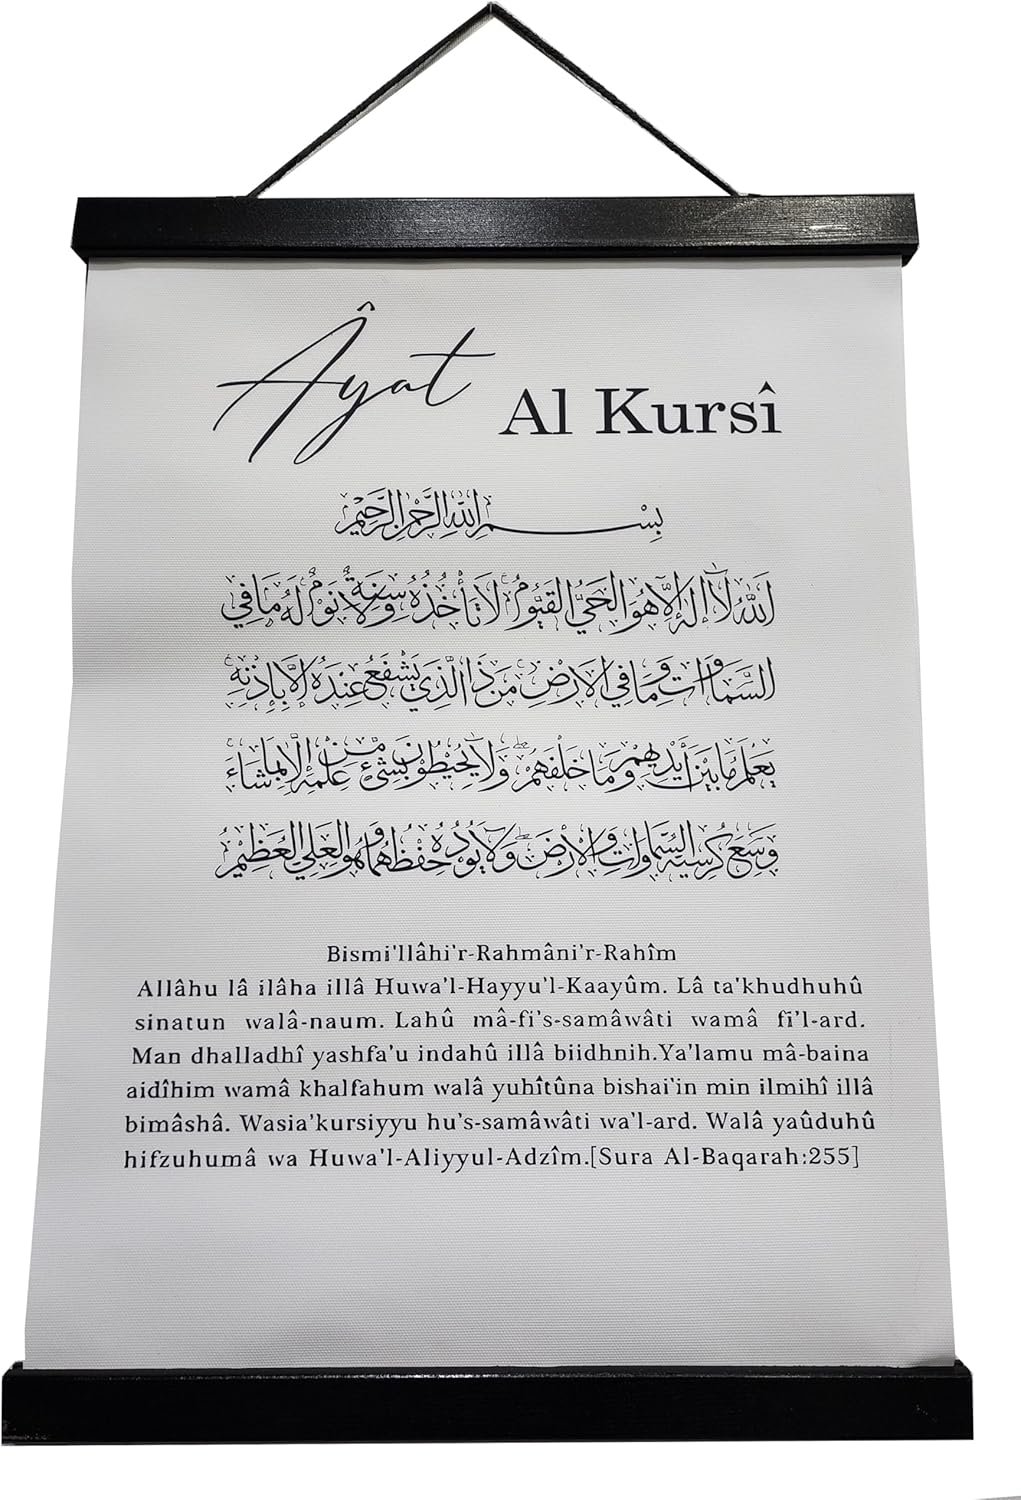 Âyat Al Kursî
بِسْمِ اللهِ الرَّحْمٰنِ الرَّحِيْمِ
اَللهُ لَآ إِلٰهَ إِلَّا هُوَ الْحَيُّ الْقَيُّومُ لَا تَأْخُذُهُ سِنَةٌ وَلَا نَوْمٌ لَهُ مَا فِي
السَّمَاوَاتِ وَمَا فِي الْأَرْضِ مَنْ ذَا الَّذِي يَشْفَعُ عِنْدَهُ إِلَّا بِإِذْنِهِ
يَعْلَمُ مَا بَيْنَ أَيْدِيهِمْ وَمَا خَلْفَهُمْ وَلَا يُحِيْطُونَ بِشَيْءٍ مِّنْ عِلْمِهِ إِلَّا بِمَا شَاءَ
وَسِعَ كُرْسِيُّهُ السَّمَاوَاتِ وَالْأَرْضَ وَلَا يَؤُدُهُ حِفْظُهُمَا وَهُوَ الْعَلِيُّ الْعَظِيْمُ
Bismi'llâhi'r-Rahmâni'r-Rahîm
Allâhu lâ ilâha illâ Huwa'l-Hayyu'l-Kaayûm. Lâ ta'khudhuhû
sinatun walâ-naum. Lahû mâ-fi's-samâwâti wamâ fi'l-ard.
Man dhalladhî yashfa'u indahû illâ biidhnih.Ya'lamu mâ-baina
aidîhim wamâ khalfahum walâ yuhîtûna bishai'in min ilmihî illâ
bimâshâ. Wasia'kursiyyu hu's-samâwâti wa'l-ard. Walâ yaûduhû
hifzuhumâ wa Huwa'l-Aliyyul-Adzîm.[Sura Al-Baqarah:255]